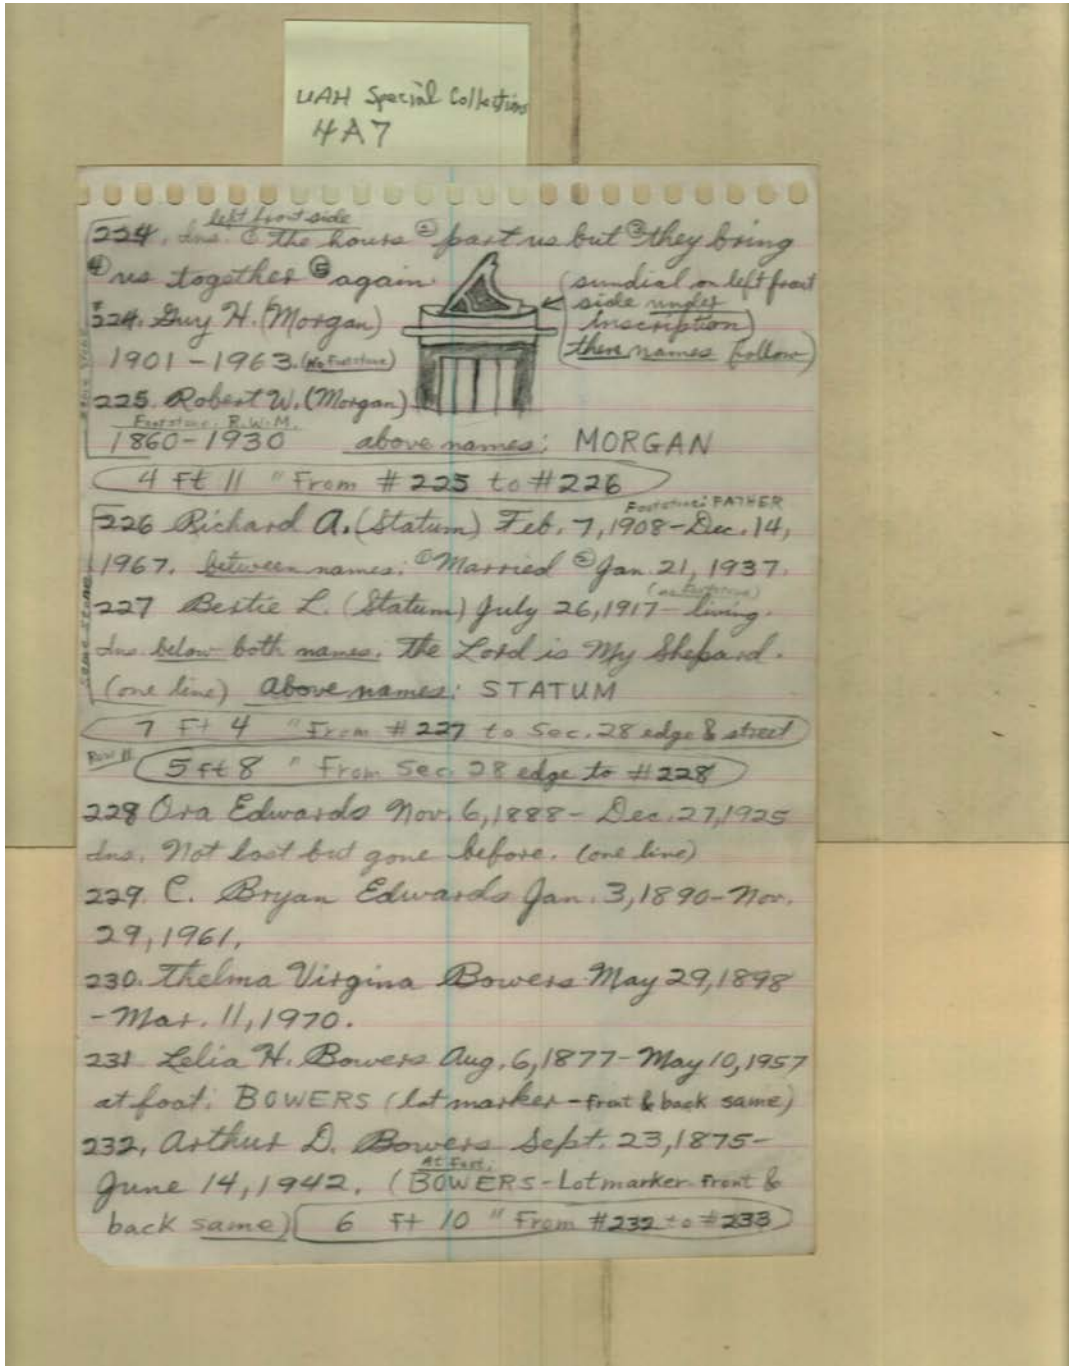 UAH Special Collections
4A7
left front side
224. Ins. ① the hours ② part us but ③ they bring
④ us together ⑤ again
(sundial on left front
side under
Inscription)
then names follow)
224. Guy H. (Morgan)
1901-1963. (No Footstone)
225. Robert W. (Morgan)
Footstone: R.W.M.
1860-1930 above names: MORGAN
4 Ft 11 " From #225 to #226
Footstone: FATHER
226 Richard A. (Statum) Feb. 7, 1908-Dec. 14,
1967. between names: ① Married ② Jan. 21, 1937.
(no Footstone)
227 Bestie L. (Statum) July 26, 1917- living.
Ins. below both names. The Lord is My Shepard.
(one line) above names: STATUM
same stone
7 Ft 4 " From #227 to Sec. 28 edge & street
Row 11
5 ft 8 " From Sec. 28 edge to #228
228 Ora Edwards Nov. 6, 1888- Dec. 27, 1925
Ins. Not lost but gone before. (one line)
229. C. Bryan Edwards Jan. 3, 1890-Nov.
29, 1961.
230. Thelma Virgina Bowers May 29, 1898
-Mar. 11, 1970.
231 Lelia H. Bowers Aug. 6, 1877-May 10, 1957
at foot: BOWERS (lot marker-front & back same)
232. Arthur D. Bowers Sept. 23, 1875-
At Foot:
June 14, 1942. (BOWERS-Lotmarker-Front &
back same) 6 Ft 10 " From #232 to #233